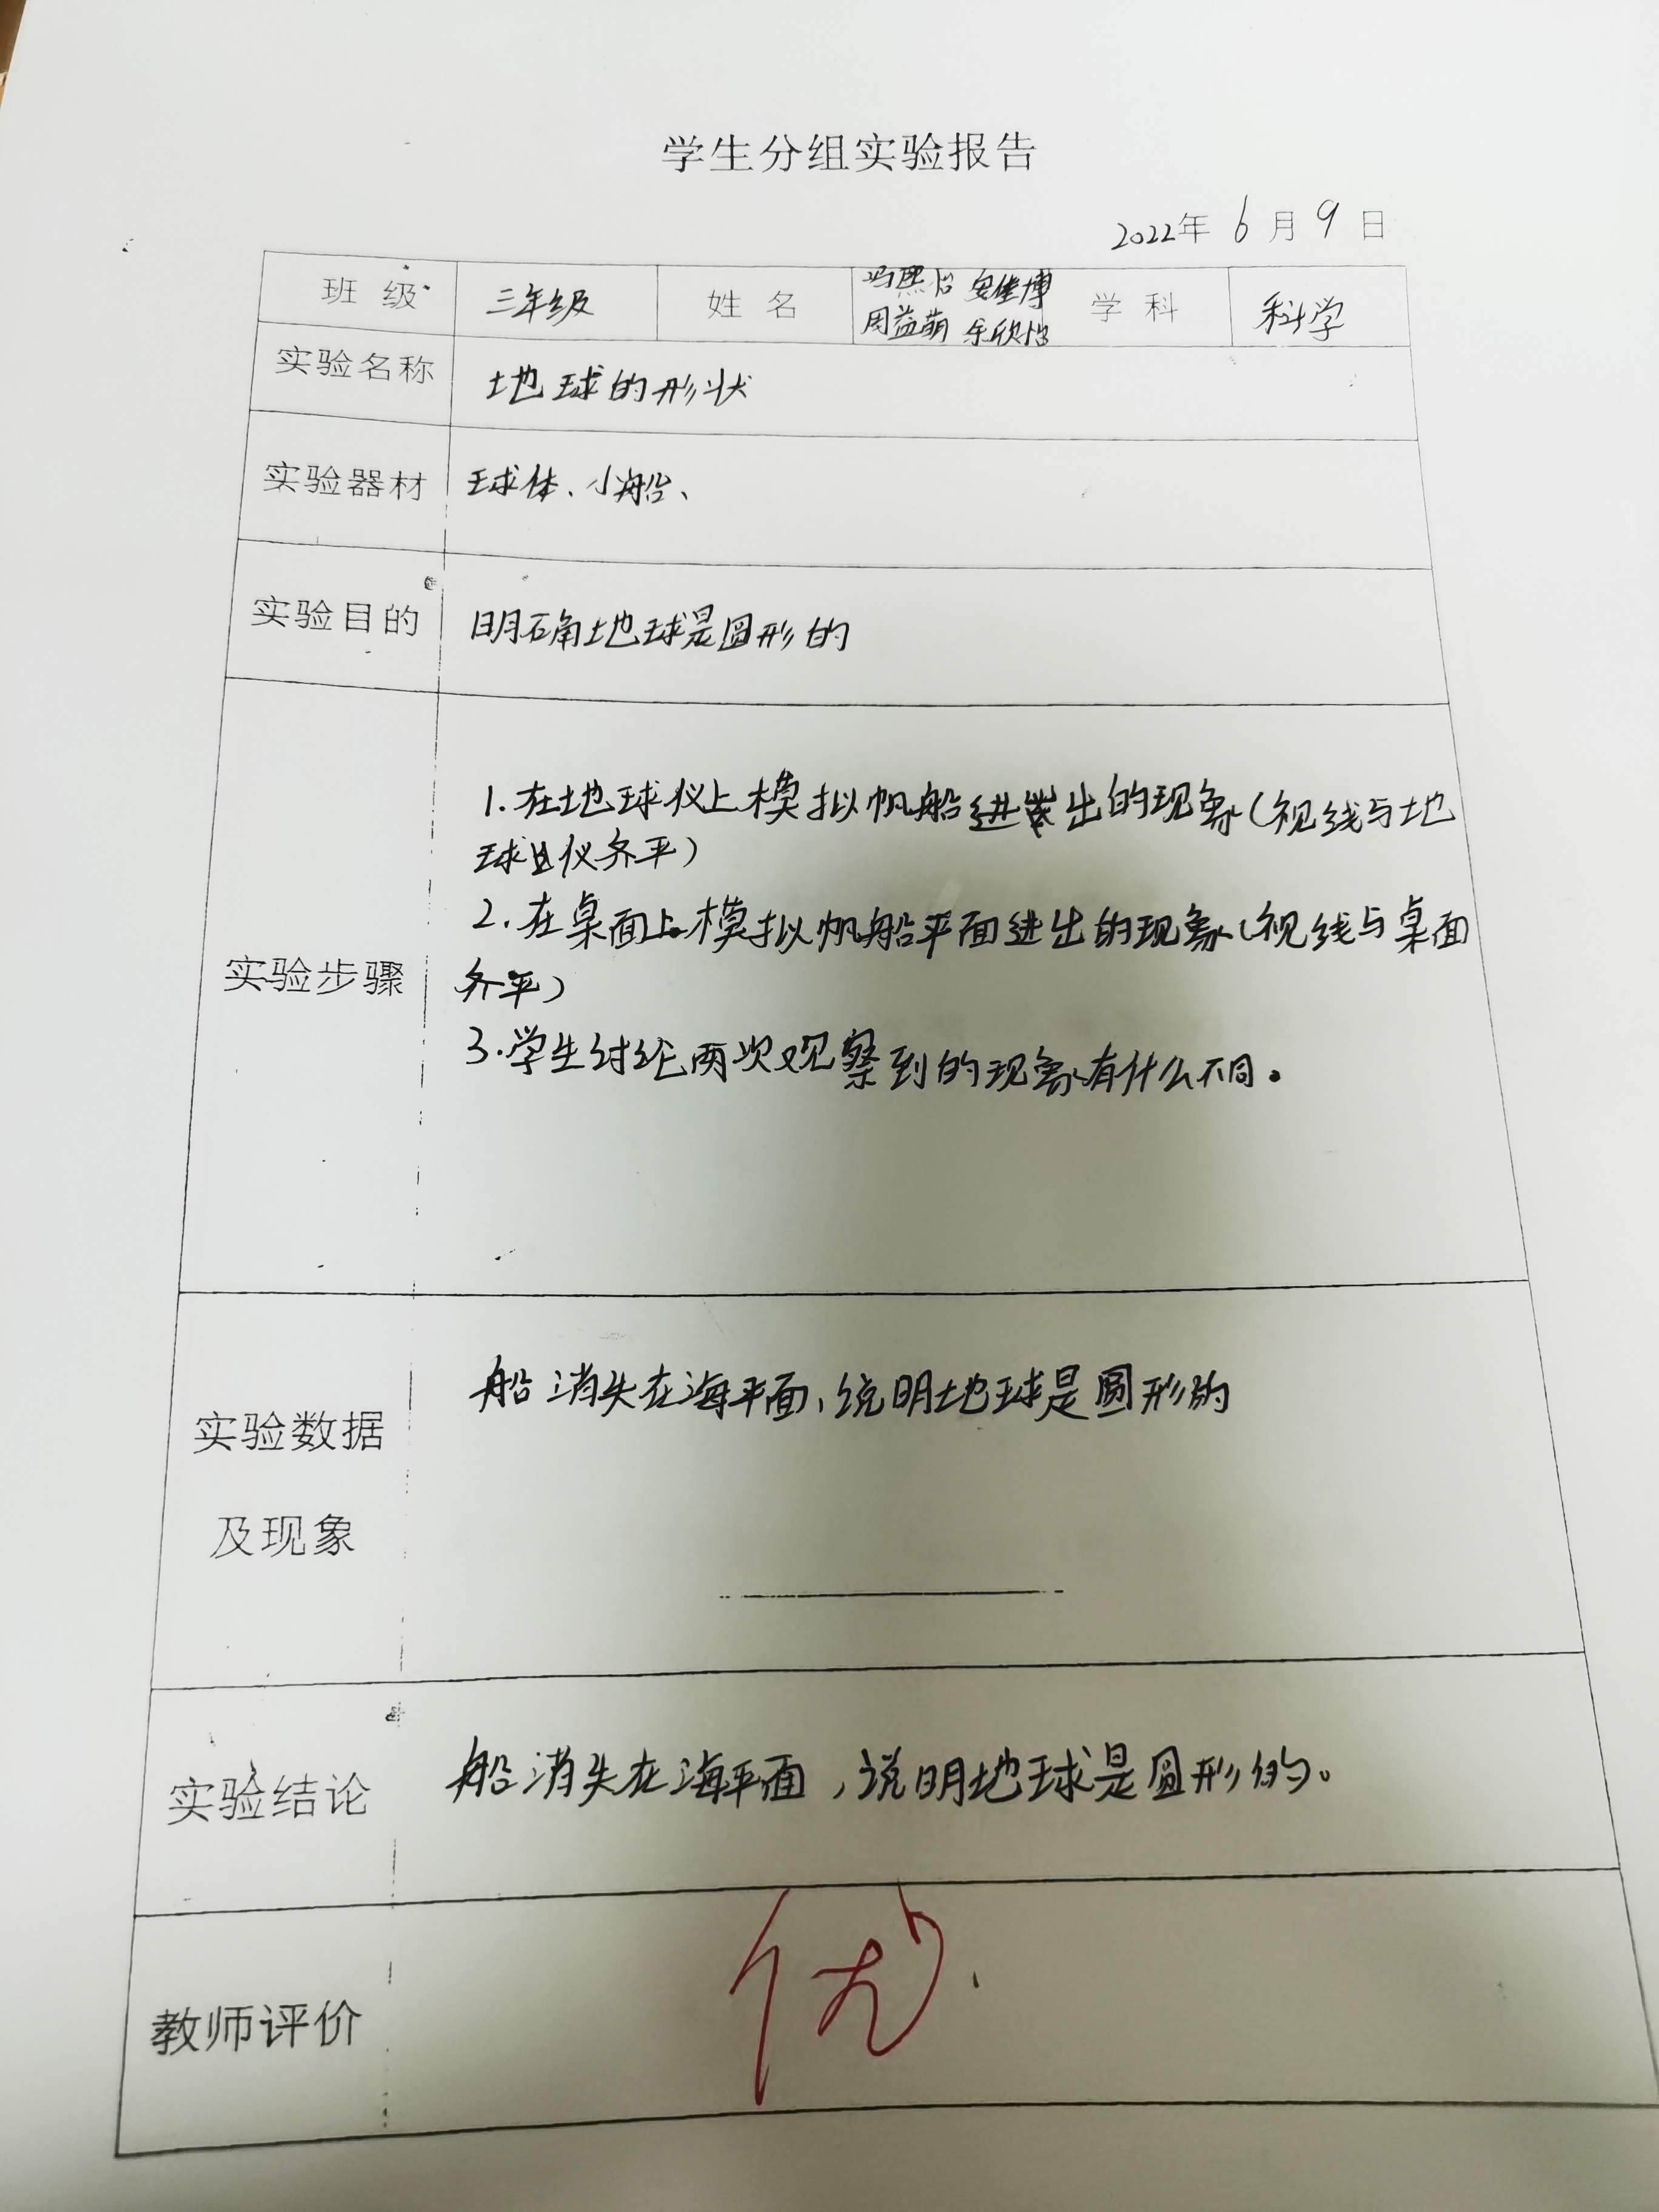 学生分组实验报告
2022年 6 月 9 日
班 级 三年级 姓 名 冯熙怡 安佳博 学 科 科学
周益萌 乐欣怡
实验名称 地球的形状
实验器材 球体、小船、
实验目的 明确地球是圆形的
1.在地球仪上模拟帆船进出的现象(视线与地
球仪齐平)
2.在桌面上模拟帆船平面进出的现象(视线与桌面
实验步骤 齐平)
3.学生讨论两次观察到的现象有什么不同。
船消失在海平面,说明地球是圆形的
实验数据
及现象
实验结论 船消失在海平面,说明地球是圆形的。
教师评价 优.